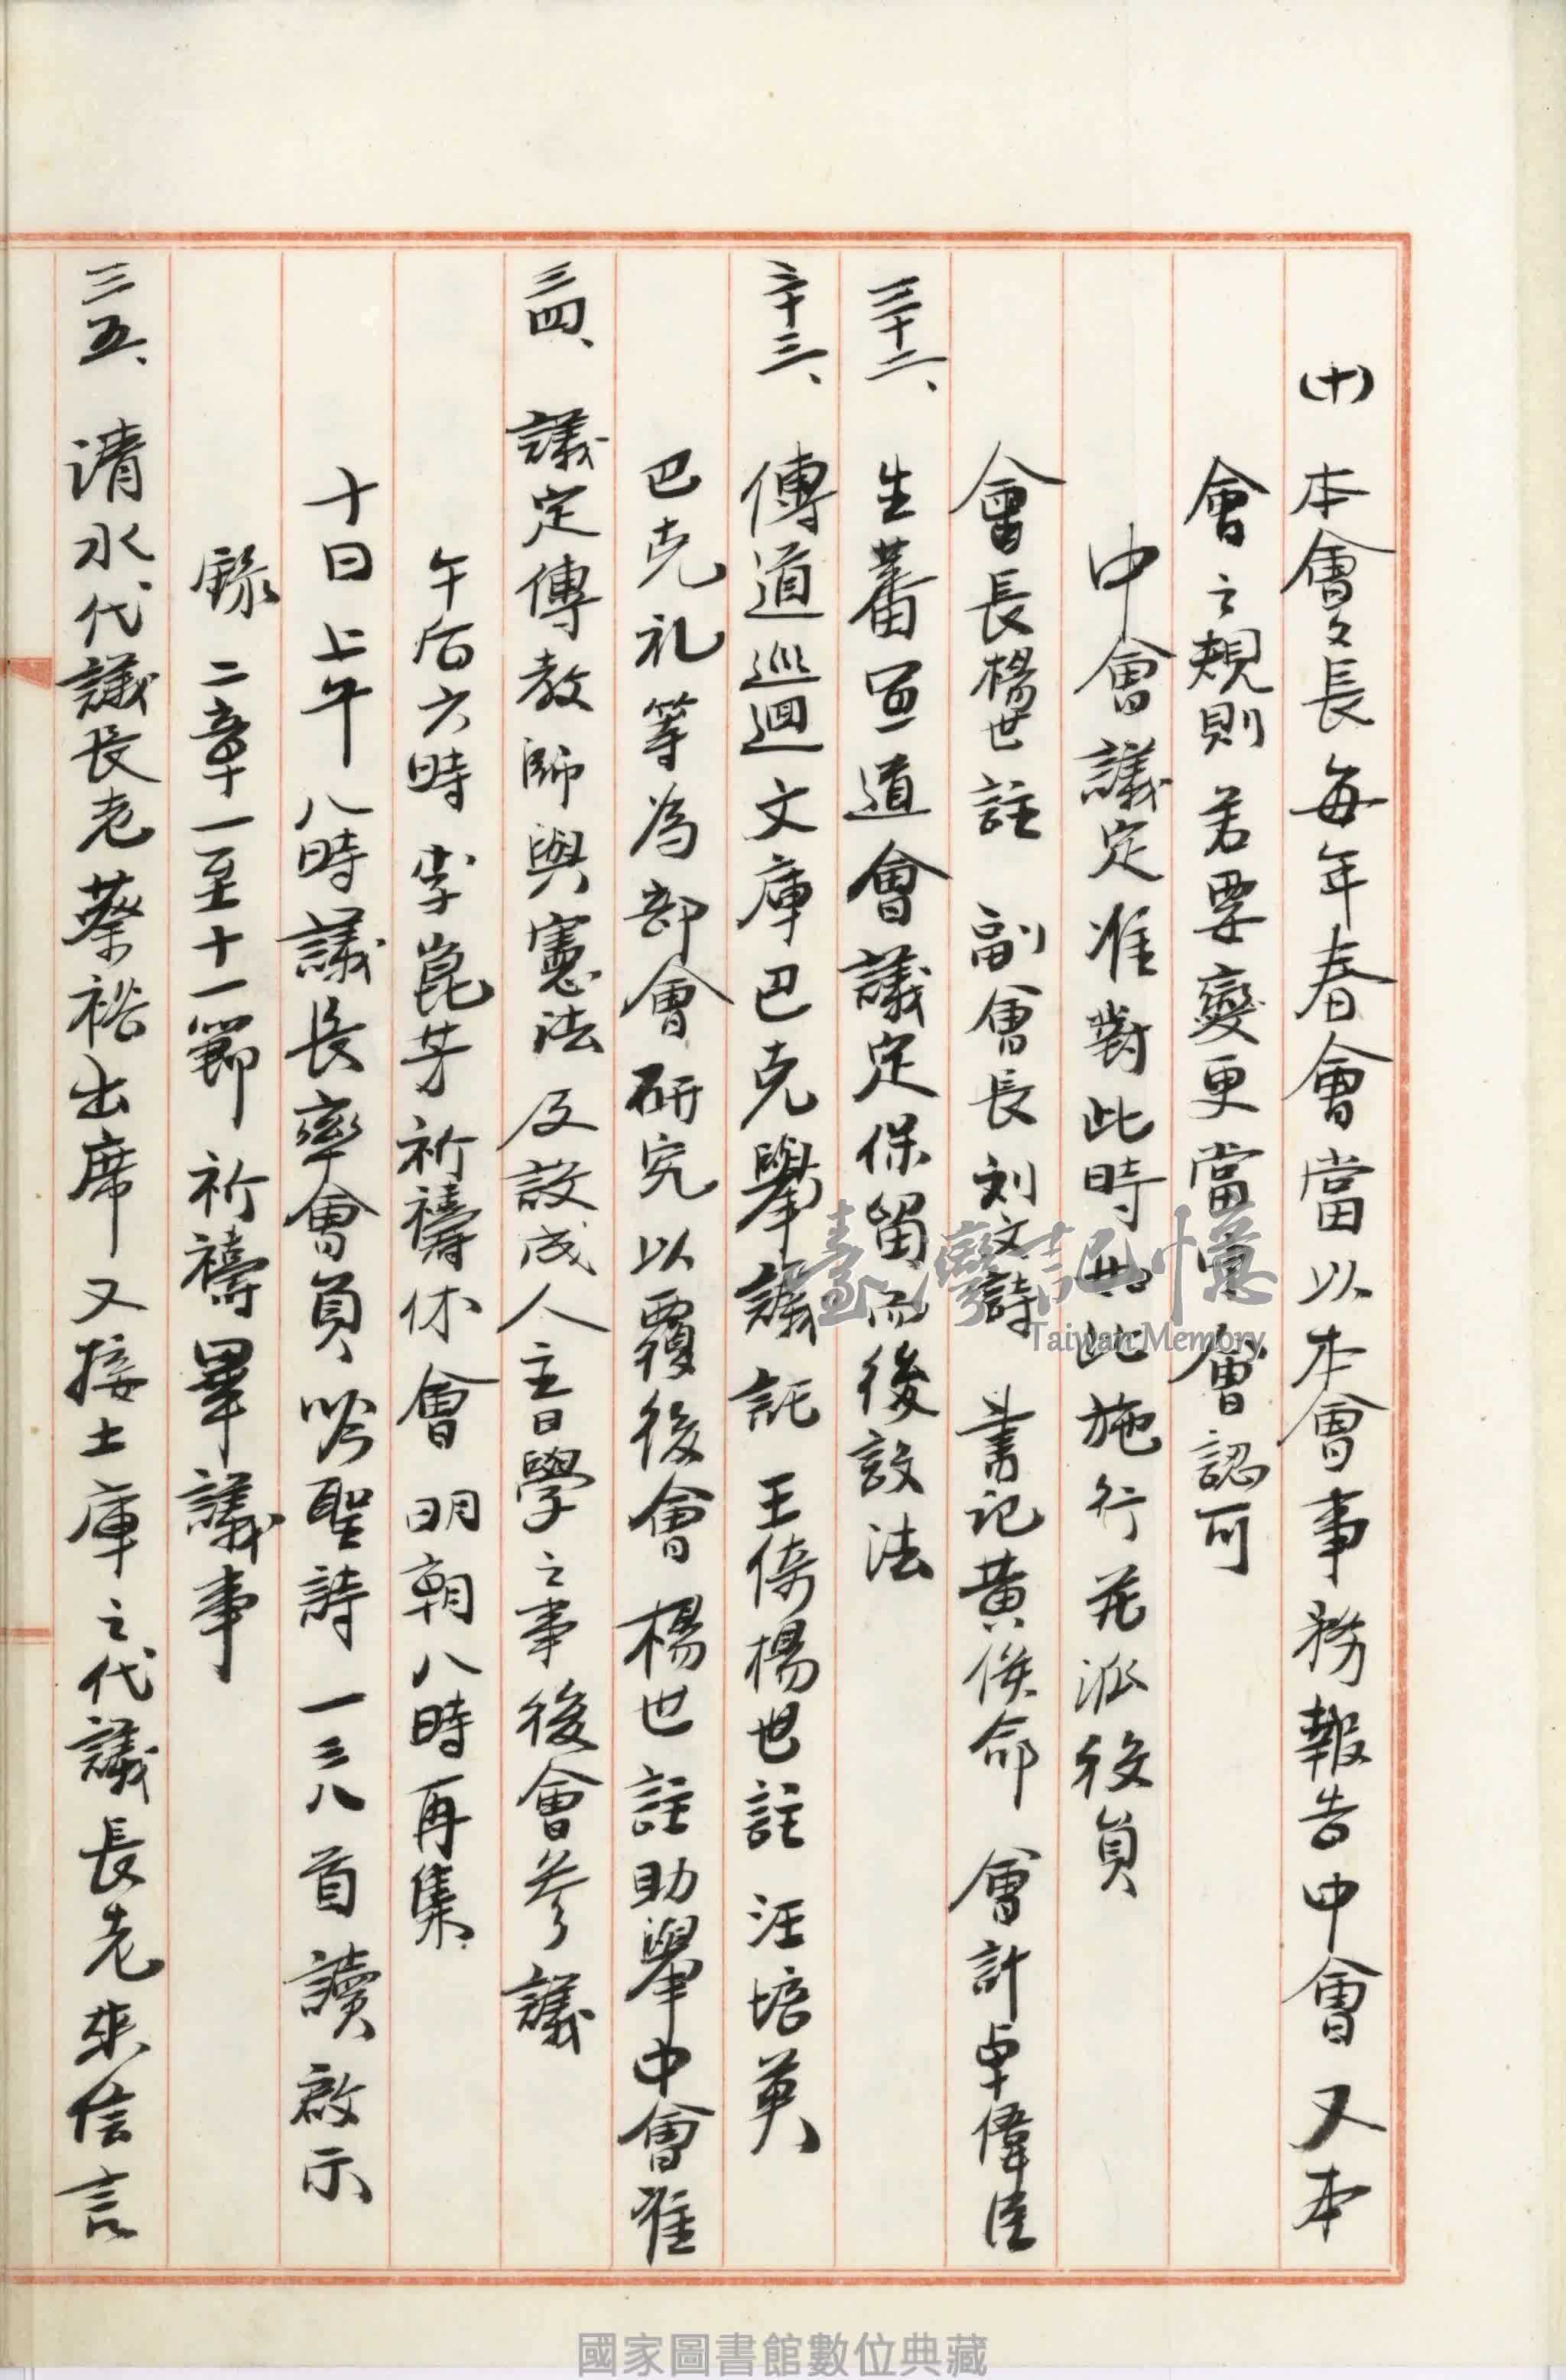 (十) 本會々長每年春會當以本會事務報告中會又本
會之規則若要變更當中會認可
中會議定准對此時如此施行並派役員
會長楊世註 副會長刘文詩 書記黃俟命 會計卓偉臣
三十二、生蕃宣道會議定保留而後設法
三十三、傳道巡迴文庫巴克舉議託王倚楊世註 汪培英
巴克礼等為部會研究以覆後會楊世註助舉中會准
三四、議定傳教師與憲法及設成人主日學之事後會參議
午后六時李崑芳祈禱休會明朝八時再集
十日上午八時議長率會員吟聖詩一三八首讀啟示
錄二章一至十一節祈禱畢議事
三五、清水代議長老蔡裕出席又接土庫之代議長老來信言
臺灣記憶
Taiwan Memory
國家圖書館數位典藏